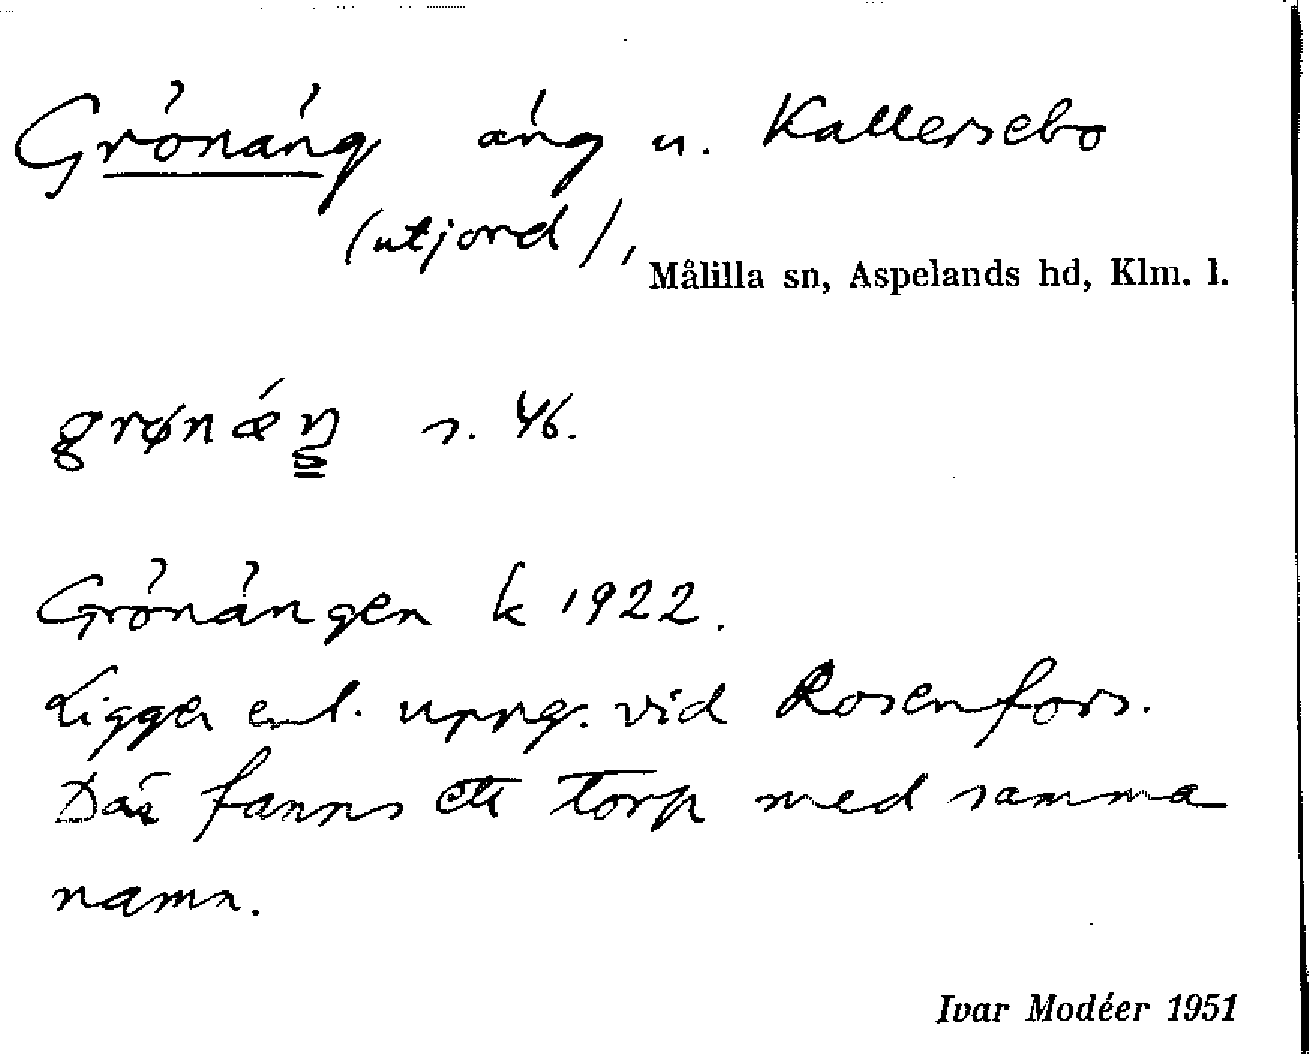 Grönäng äng u. Kallersebo
(utjord),
Målilla sn, Aspelands hd, Klm. l.
grønǽŋ s. 46.
Grönängen k 1922.
Ligger enl. uppg. vid Rosenfors.
Där fanns ett torp med samma
namn.
Ivar Modéer 1951